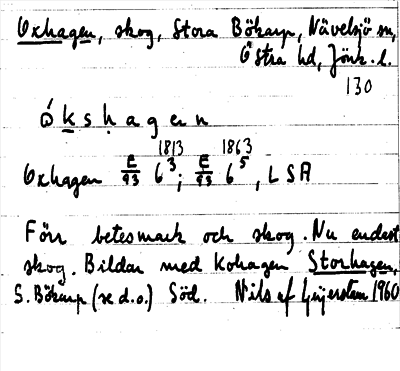 Oxhagen, skog, Stora Bökarp, Nävelsjö sn,
Östra hd, Jönk. l.
130
ókshagen
1813 1863
Oxhagen E/93 6³; E/93 6⁵, LSA
Förr betesmark och skog. Nu endast
skog. Bildar med Kohagen Storhagen,
S. Bökarp (se d.o.) Söd. Nils af Geijerstam 1960